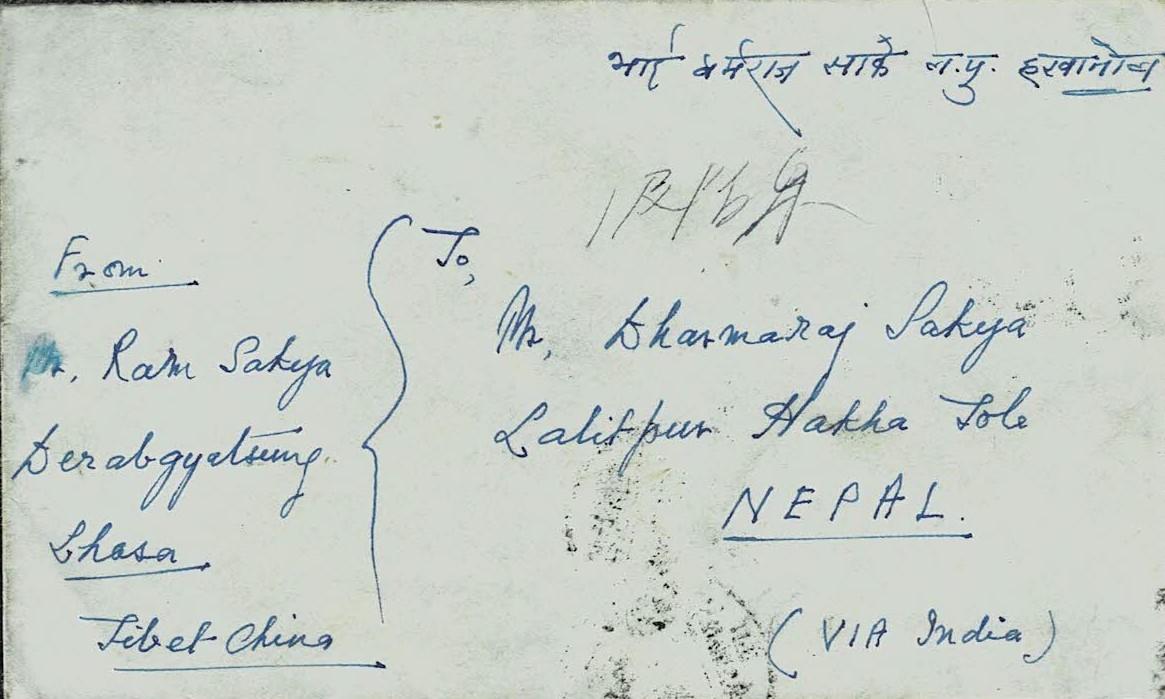 भाई धर्मराज साके ल.पु. हखात्रोल
From
Mr, Ram Sakya
Derabgyatsung
Lhasa
Tibet China
To,
Mr, Dharmaraj Sakya
Lalitpur Hakha Tole
NEPAL.
(VIA India)